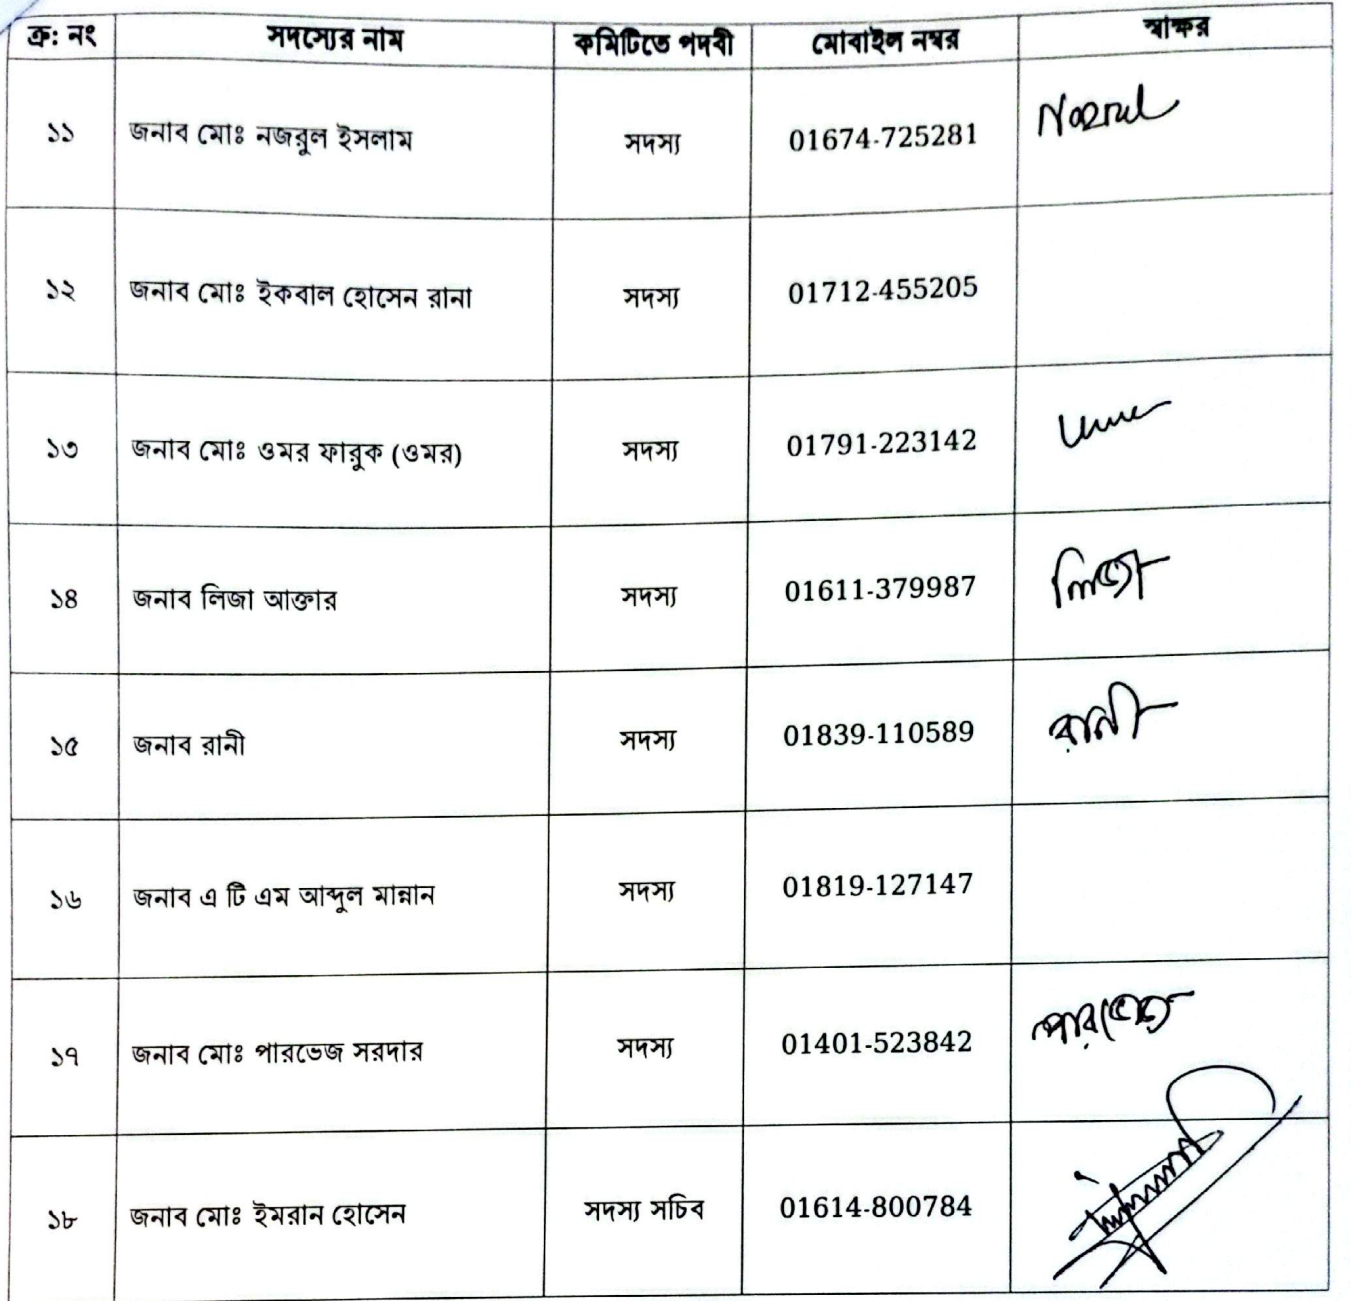 ক্র: নং সদস্যের নাম কমিটিতে পদবী মোবাইল নম্বর স্বাক্ষর
১১ জনাব মোঃ নজরুল ইসলাম সদস্য 01674-725281 Nazrul
১২ জনাব মোঃ ইকবাল হোসেন রানা সদস্য 01712-455205
১৩ জনাব মোঃ ওমর ফারুক (ওমর) সদস্য 01791-223142
১৪ জনাব লিজা আক্তার সদস্য 01611-379987 লিজা
১৫ জনাব রানী সদস্য 01839-110589 রানী
১৬ জনাব এ টি এম আব্দুল মান্নান সদস্য 01819-127147
১৭ জনাব মোঃ পারভেজ সরদার সদস্য 01401-523842 পারভেজ
১৮ জনাব মোঃ ইমরান হোসেন সদস্য সচিব 01614-800784